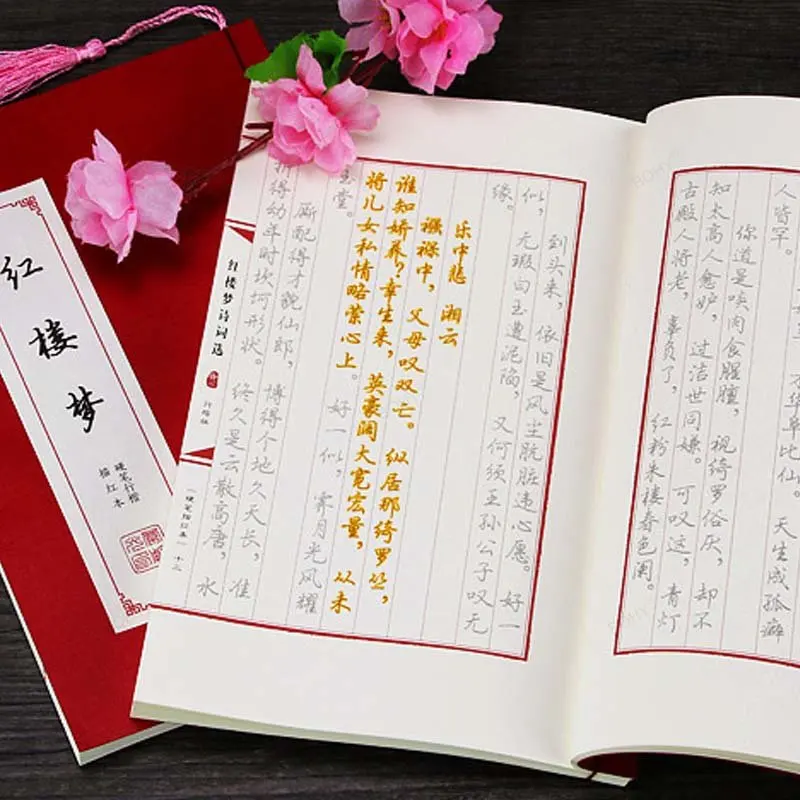 华阜比仙。天生成孤癖
人皆罕。
你道是啖肉食腥膻,视绮罗俗厌,却不
知太高人愈妒,过洁世同嫌。可叹这,青灯
古殿人将老,辜负了,红粉朱楼春色阑。
到头来,依旧是风尘肮脏违心愿。好一
似,无瑕白玉遭泥陷,又何须王孙公子叹无
缘。
乐中悲 湘云
襁褓中,父母叹双亡。纵居那绮罗丛,
谁知娇养?幸生来,英豪阔大宽宏量,从未
将儿女私情略萦心上。好一似,霁月光风耀
玉堂。
厮配得才貌仙郎,博得个地久天长,准
折得幼年时坎坷形状。终久是云散高唐,水
红楼梦诗词选
行楷版
《硬笔描红本》十三
红楼梦
硬笔行楷
描红本